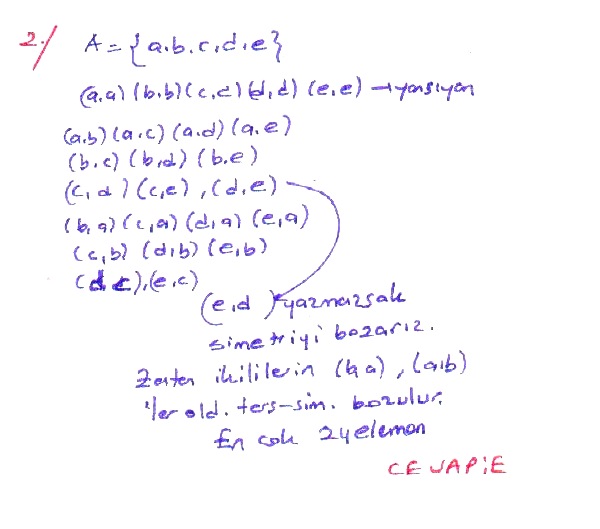 2-/ A = {a.b.c,d,e}
(a,a) (b.b) (c,c) (d,d) (e,e) → yansıyan
(a.b) (a.c) (a.d) (a.e)
(b.c) (b,d) (b.e)
(c,d) (c,e), (d,e)
(b,a) (c,a) (d,a) (e,a)
(c,b) (d,b) (e,b)
(d c), (e.c)
(e,d) yazmazsak
simetriyi bozarız.
Zaten ikililerin (b,a), (a,b)
'ler old. ters-sim. bozulur.
En çok 24 eleman
CEVAP: E